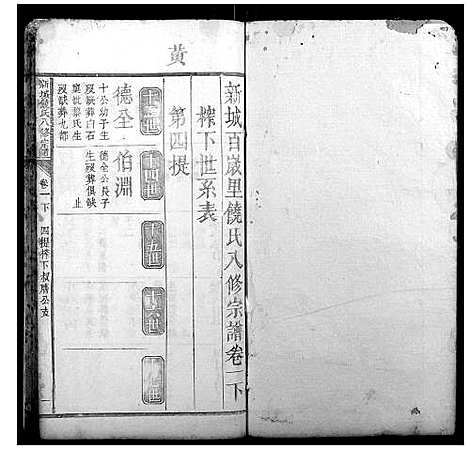 黃
新城百嵗里饒氏八修宗譜卷一下
榨下世系表
第四提
十三世
十四世
十五世
十六世
十七世
德全
十公幼子生
歿缺葬白石
窠妣黎氏生
歿缺葬九部
伯淵
德全公長子
生歿葬俱缺
止
新城饒氏八修宗譜
卷一下
四提榨下叔隣公支
一